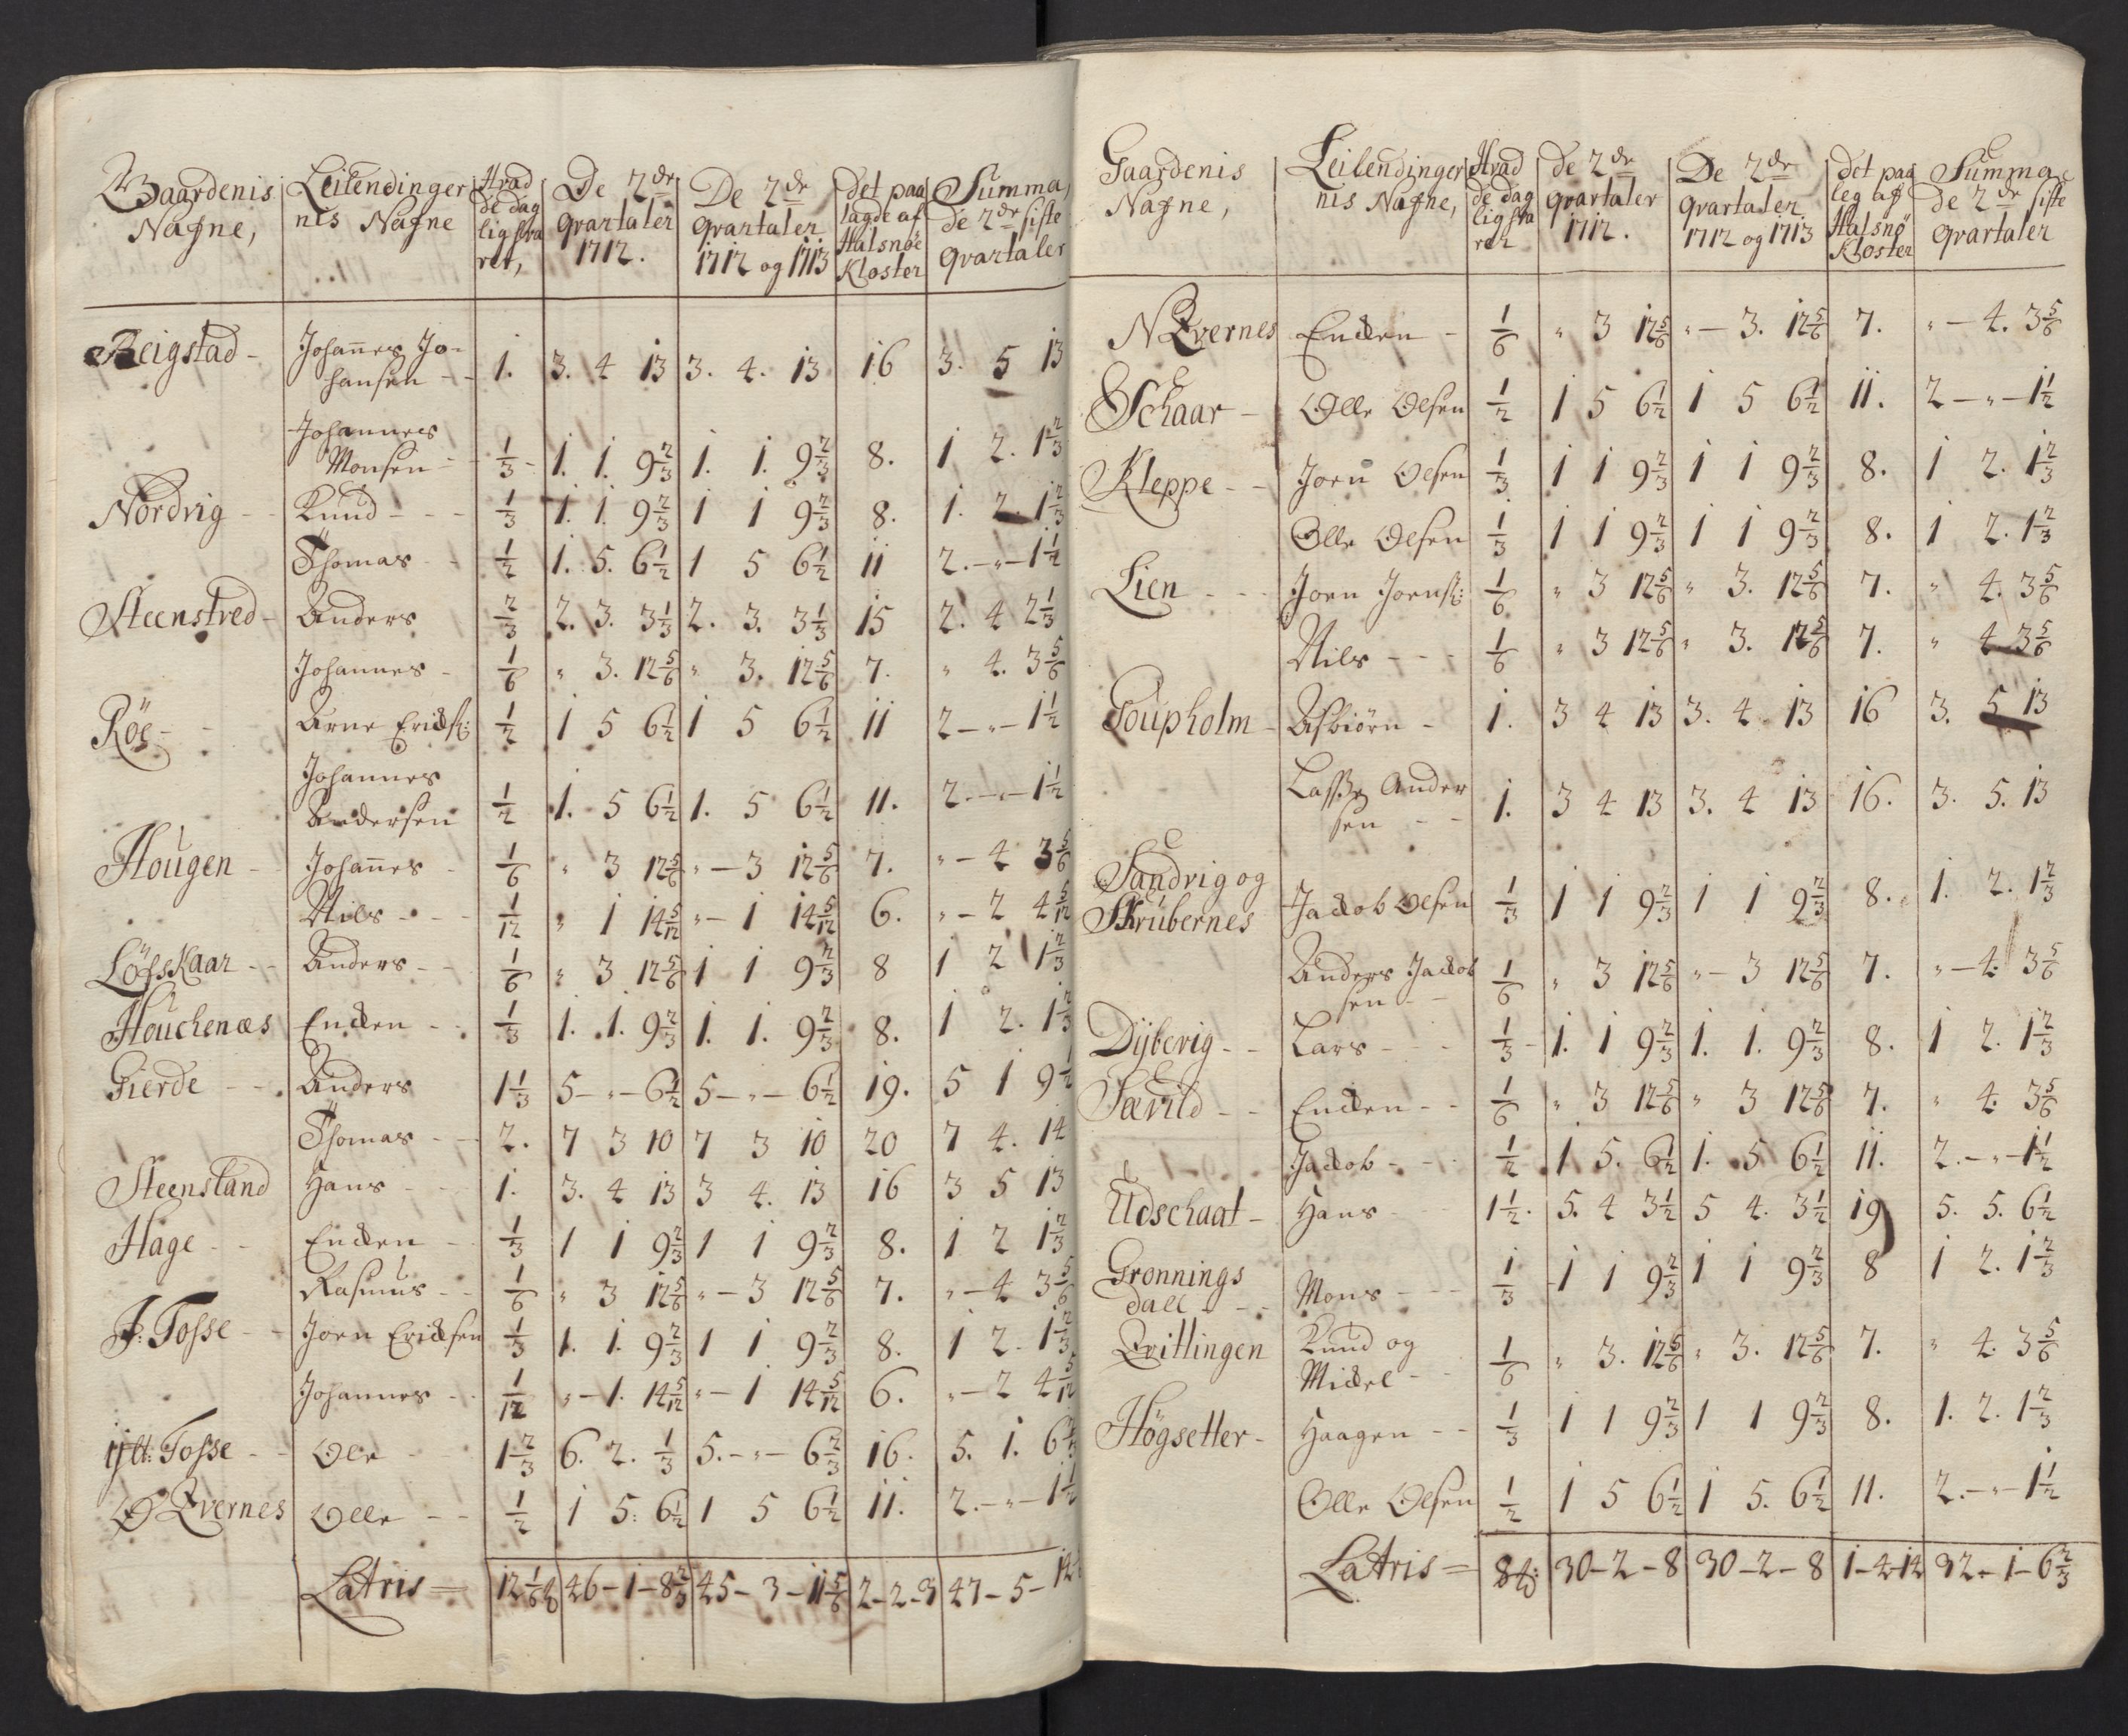 Gaardenis Nafne, | Leilendinger nis Nafne | Hvad de dag lig sva rer, | De 2de qvartaler 1712. | De 2de qvartaler 1712 og 1713 | det paa lagde af Halsnöe Kloster | Summa, de 2de siste qvartaler
Reigstad - | Johannes Jo-
hansen - | 1. | 3. 4 13 | 3. 4. 13 | 16 | 3. 5 13
Johannes
Monsen - | 1/3 - | 1. 1. 9 2/3 | 1. 1. 9 2/3 | 8. | 1 2. 1 2/3
Nordvig - | Knud - - - | 1/3 | 1. 1. 9 2/3 | 1 1 9 2/3 | 8. | 1. 2. 1 2/3
Thomas - | 1/2 | 1. 5. 6 1/2 | 1 5 6 1/2 | 11 | 2. - " - 1 1/2
Steenstred - | Anders | 2/3 | 2. 3. 3 1/3 | 2. 3. 3 1/3 | 15 | 2. 4 2 1/3
Johannes - | 1/6 | " 3. 12 5/6 | " 3. 12 5/6 | 7. | " 4. 3 5/6
Röe - - | Arne Ericks: | 1/2 | 1 5 6 1/2 | 1 5 6 1/2 | 11 | 2 - " - 1 1/2
Johannes
Andersen | 1/2 | 1. 5 6 1/2 | 1. 5 6 1/2 | 11. | 2. - " - 1 1/2
Hougen - | Johannes - | 1/6 | " 3 12 5/6 | " - 3 12 5/6 | 7. | " - 4 3 5/6
Nils - - - | 1/12 | " 1 14 5/12 | " - 1 14 5/12 | 6. | " - 2 4 5/12
Löfskaar - - | Anders - - | 1/6 | " 3 12 5/6 | 1 1 9 2/3 | 8 | 1 2 1 2/3
Houchenæs | Encken - - | 1/3 | 1. 1. 9 2/3 | 1. 1. 9 2/3 | 8. | 1 2. 1 2/3
Gierde - - | Anders | 1 1/3 | 5 - " - 6 1/2 | 5 - " - 6 1/2 | 19. | 5 1 9 1/2
Thomas - - | 2. | 7 3 10 | 7 3 10 | 20 | 7 4. 14
Steensland | Hans - - | 1. | 3. 4 13 | 3 4. 13 | 16 | 3 5 13
Hage - - | Encken - | 1/3 | 1 1 9 2/3 | 1 1 9 2/3 | 8. | 1 2 1 2/3
Rasmus - - | 1/6 | " 3 12 5/6 | " - 3 12 5/6 | 7. | " - 4 3 5/6
J: Fosse - - | Joen Ericksen | 1/3 | 1. 1. 9 2/3 | 1 1 9 2/3 | 8. | 1 2. 1 2/3
Johannes - - | 1/12 | " - 1. 14 5/12 | " - 1 14 5/12 | 6. | " - 2 4 5/12
ijtt: Fosse - - | Ole - | 1 2/3 | 6. 2. 1/3 | 5. - " - 6 2/3 | 16. | 5. 1. 6 2/3
Ø Qvernes | Olle - - | 1/2 | 1 5: 6 1/2 | 1 5 6 1/2 | 11. | 2. - " - 1 1/2
Latris = | 12 1/6 | 46 - 1 - 8 2/3 | 45 - 3 - 11 5/6 | 2 - 2 - 9 | 47 - 5 - 12
Gaardenis Nafne, | Leilendinger nis Nafne, | Hvad de dag lig sva rer | de 2de qvartaler 1712. | De 2de qvartaler 1712 og 1713 | det paa leg af Halsnö Kloster | Summa de 2de siste qvartaler
N Qvernes | Encken - | 1/6 | " 3 12 5/6 | " - 3. 12 5/6 | 7. | " - 4. 3 5/6
Schaar - | Olle Olsen | 1/2 | 1 5 6 1/2 | 1 5 6 1/2 | 11. | 2 - " - 1 1/2
Kleppe - - | Joen Olsen | 1/3 | 1 1 9 2/3 | 1 1 9 2/3 | 8. | 1 2. 1 2/3
Olle Olsen | 1/3 | 1 1 9 2/3 | 1 1 9 2/3 | 8. | 1 2. 1 2/3
Lien - - - | Joen Joens: | 1/6 | " 3 12 5/6 | " 3. 12 5/6 | 7. | " 4. 3 5/6
Nils - - - | 1/6 | " 3 12 5/6 | " 3. 12 5/6 | 7. | " 4 3 5/6
Goupholm - | Asbiörn - | 1. | 3 4 13 | 3. 4. 13 | 16 | 3. 5 13
Lasse Ander
sen - - | 1. | 3 4 13 | 3. 4 13 | 16. | 3. 5. 13
Sandvig og
Skrubernes | Jackob Olsen | 1/3 | 1 1 9 2/3 | 1 1 9 2/3 | 8. | 1. 2. 1 2/3
Anders Jackob
sen - - | 1/6 | " 3 12 5/6 | " - 3 12 5/6 | 7. | " - 4. 3 5/6
Dijbevig - - | Lars - - - | 1/3 - | 1. 1 9 2/3 | 1. 1. 9 2/3 | 8. | 1 2. 1 2/3
Sævild - - | Encken - - | 1/6 | " 3 12 5/6 | " 3 12 5/6 | 7. | " 4. 3 5/6
Jackob - - - | 1/2 | 1 5. 6 1/2 | 1. 5 6 1/2 | 11. | 2. - " - 1 1/2
Udschaat - | Hans - - | 1 1/2. | 5. 4 3 1/2 | 5 4. 3 1/2 | 19 | 5. 5. 6 1/2
Gronnings
dall - - - | Mons - - - | 1/3 | 1 1 9 2/3 | 1 1 9 2/3 | 8 | 1 2. 1 2/3
Qvitlingen | Knud og
Mickel - - | 1/6 | " 3. 12 5/6 | " 3. 12 5/6 | 7. | " 4. 3 5/6
Högsetter - | Haagen - - | 1/3 | 1 1 9 2/3 | 1 1 9 2/3 | 8. | 1. 2. 1 2/3
Olle Olsen | 1/2 | 1 5 6 1/2 | 1 5. 6 1/2 | 11. | 2. - " - 1 1/2
Latris = | 8 | 30 - 2 - 8 | 30 - 2 - 8 | 1 - 4 - 14 | 32 - 1 - 6 2/3